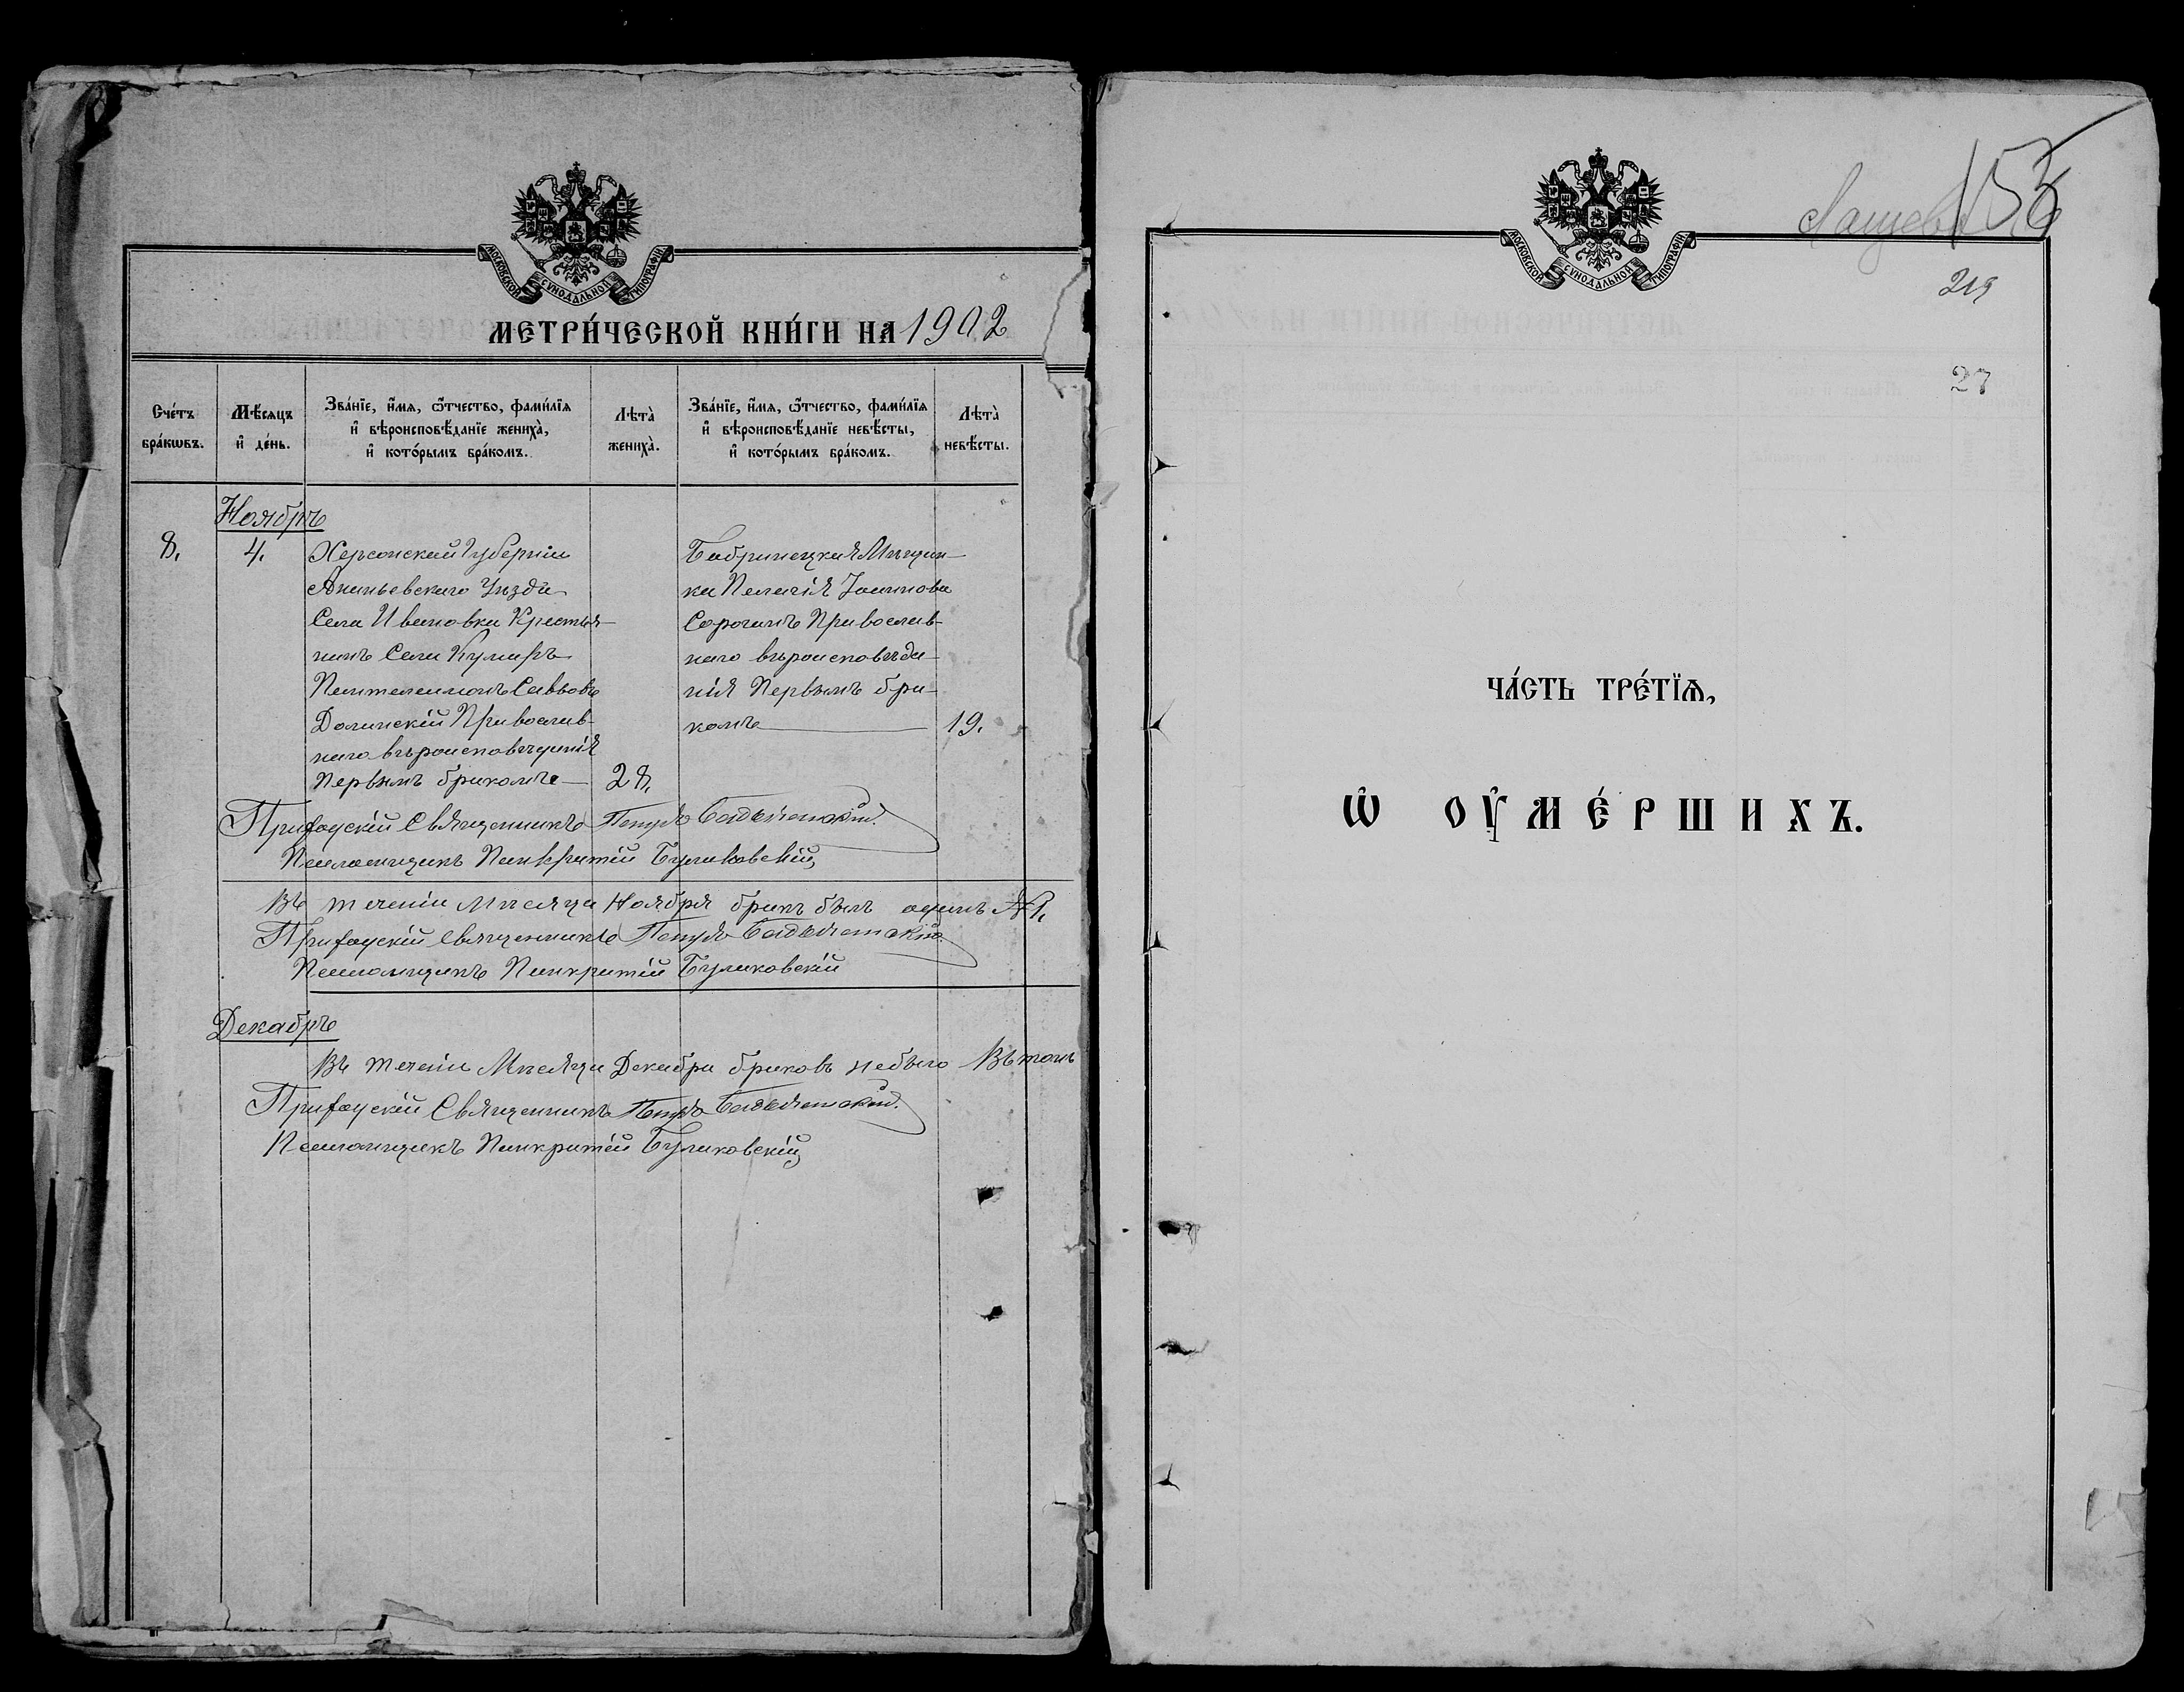 МОСКОВСКОЙ СУНОДАЛЬНОЙ ТИПОГРАФІИ.
МЕТРИ́ЧЕСКОЙ КНИ́ГИ НА 1902
Сче́тъ бра́кѡвъ.
Мѣ́сяцъ и҆ де́нь.
Зва́нїе, и҆́мя, ѻ҆́тчество, фами́лїя
и҆ вѣроисповѣ́данїе жениха̀,
и҆ кото́рымъ бра́комъ.
Лѣта̀ жениха̀.
Зва́нїе, и҆́мя, ѻ҆́тчество, фами́лїя
и҆ вѣроисповѣ́данїе невѣ́сты,
и҆ кото́рымъ бра́комъ.
Лѣта̀ невѣ́сты.
Ноябрь
8.
4.
Херсонской Губерніи
Ананьевскаго Уѣзда
Села Ивановки Крестья-
нинъ Села
Пантелеимонъ Саввовъ
Долинскій Православ-
наго вѣроисповѣданія
Первымъ бракомъ
28.
Бобринецкая Мѣщан-
ка Пелагія Іоаннова
Сорочанъ Православ-
наго вѣроисповѣда-
нія Первымъ бра-
комъ
19.
Приходскій Священникъ Петръ
Псаломщикъ Панкратій Буликовскій
Въ теченіи Мѣсяца Ноября бракъ былъ одинъ №1.
Приходскій Священникъ Петръ
Псаломщикъ Панкратій Буликовскій
Декабрь
Въ теченіи Мѣсяца Декабра браковъ небыло Въ томъ
Приходскій Священникъ Петръ
Псаломщикъ Панкратій Буликовскій
МОСКОВСКОЙ СУНОДАЛЬНОЙ ТИПОГРАФІИ.
219
27
ЧА́СТЬ ТРЕ́ТЇѦ,
Ѡ҆ ОУ҆МЕ́РШИХЪ.